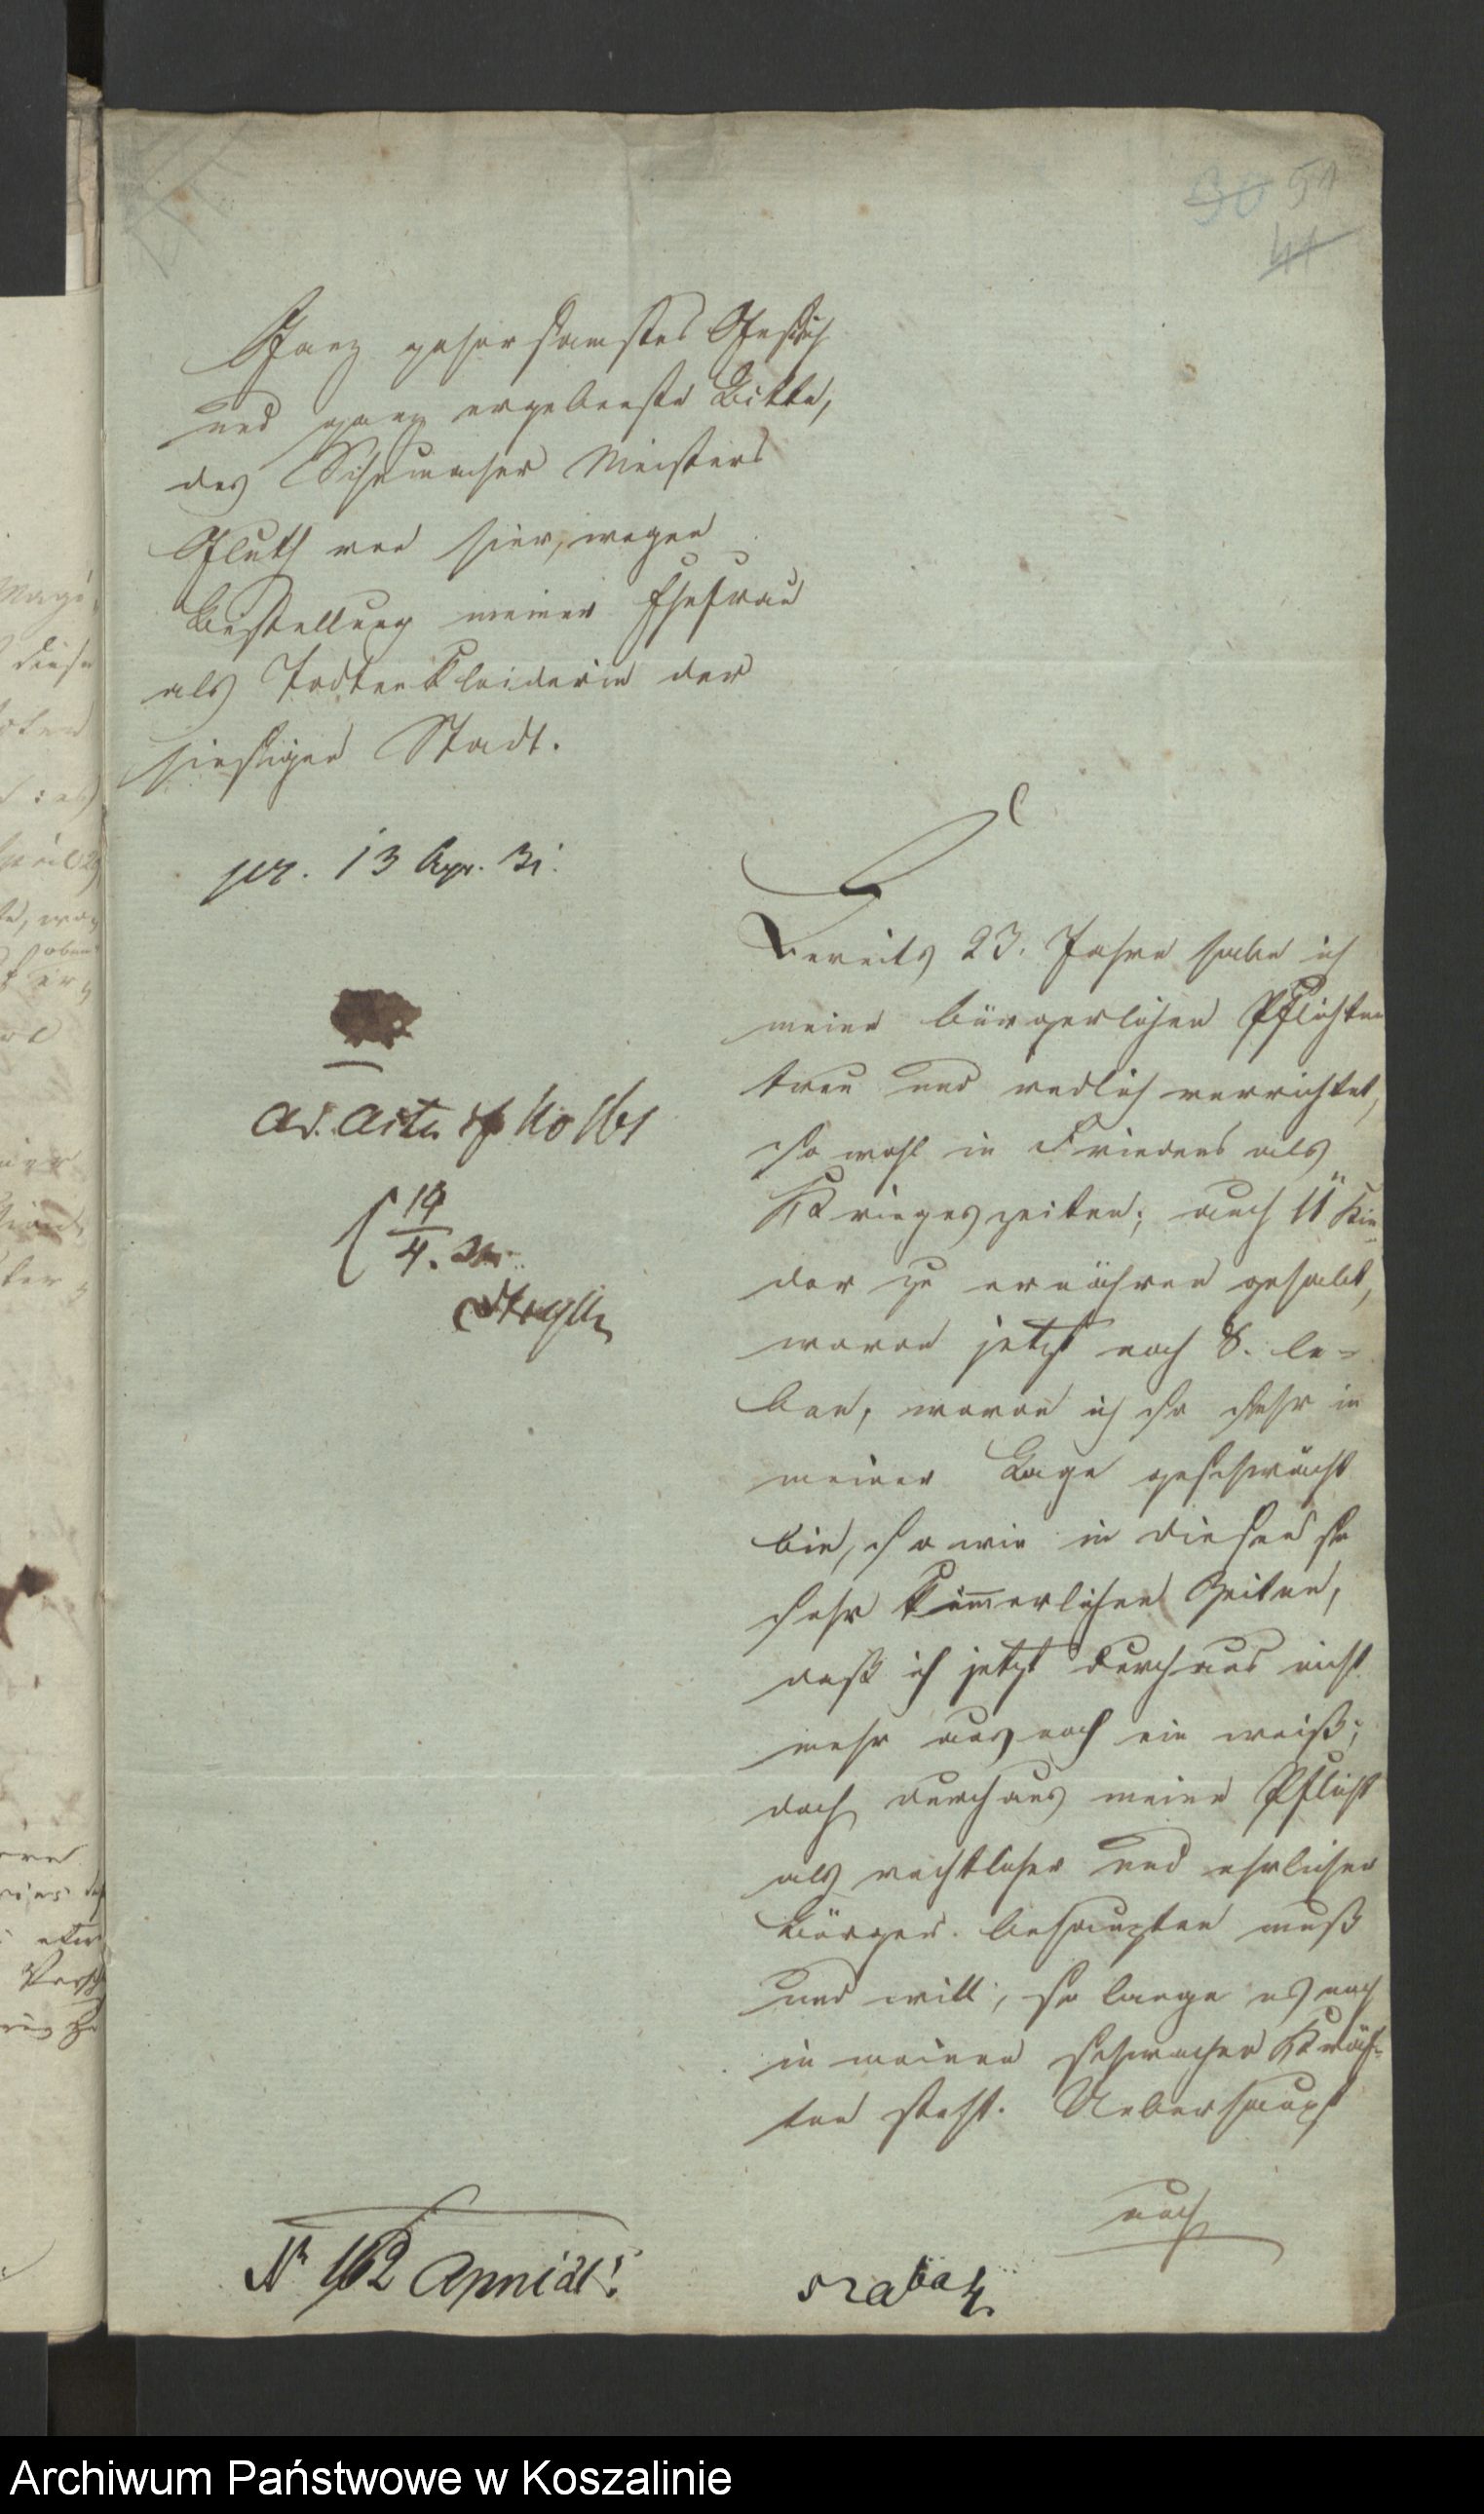 90 51
41
Ganz gehorsamstes Gesuch
und ganz ergebenste Bitte,
des Schumacher Meisters
Gluth von hier, wegen
Bestellung meiner Ehefrau
als Todtenkleiderin der
hiesigen Stadt.
pr. 13 Apr. 31.
Bereits 23. Jahre habe ich
meine bürgerlichen Pflichten
treu und redlich verrichtet,
so wohl in Friedens als
Krieges zeiten; auch 11 Kin-
der zu ernähren gehabt,
wovon jetzt noch 8. le-
ben, wovon ich so sehr in
meiner Lage geschwächt
bin, so wie in diesen so
sehr kümmerlichen Zeiten,
daß ich jetzt durchaus nicht
mehr aus noch ein weiß;
doch durchaus meine Pflicht
als rechtlicher und ehrlicher
Bürger behaupten muß
und will, so lange es noch
in meinen schwachen Kräf-
ten steht. Ueberhaupt
noch
ad. acta
19
4.
Nr 162
Archiwum Państwowe w Koszalinie